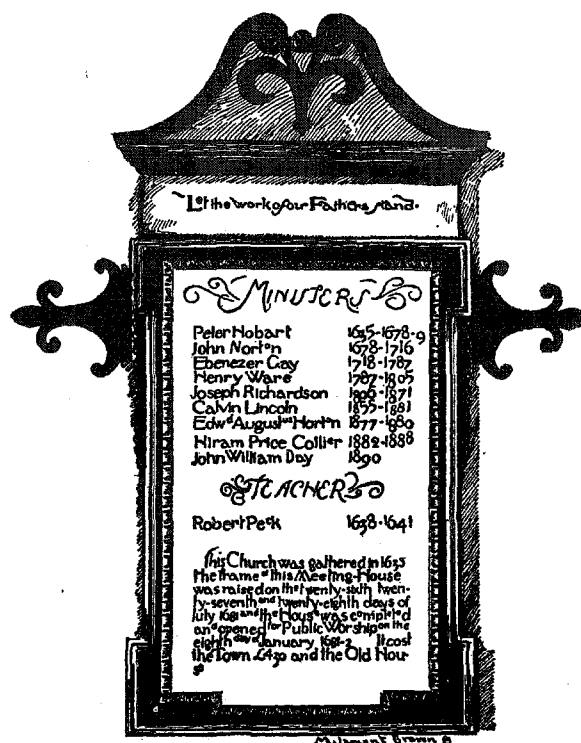 Let the work of our Fathers stand.
MINISTERS
Peter Hobart 1635-1678-9
John Norton 1678-1716
Ebenezer Gay 1718-1787
Henry Ware 1787-1805
Joseph Richardson 1806-1871
Calvin Lincoln 1855-1881
Edwd Augustus Horton 1877-1880
Hiram Price Collier 1882-1888
John William Day 1890
TEACHER
Robert Peck 1638-1641
This Church was gathered in 1635
the frame of this Meeting-House
was raised on the twenty-sixth twen-
ty-seventh and twenty-eighth days of
July 1681 and the House was completed
and opened for Public Worship on the
eighth day of January 1681-2 It cost
the Town £430 and the Old Hou-
se